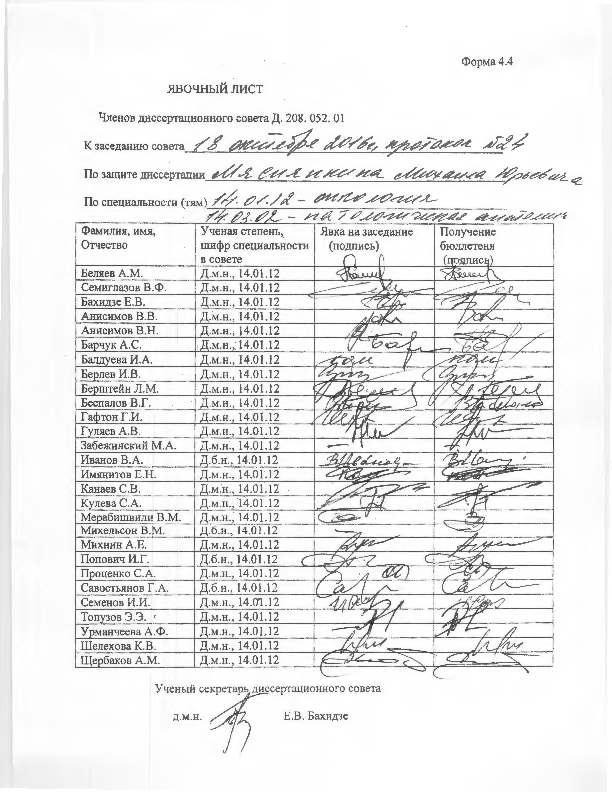 Форма 4.4
ЯВОЧНЫЙ ЛИСТ
Членов диссертационного совета Д. 208. 052. 01
К заседанию совета 18 октября 2016г, протокол №24
По защите диссертации Мясняникина Михаила Юрьевича
По специальности (тям) 14.01.12 – онкология
14.03.02 – патологическая анатомия
Фамилия, имя, Отчество Ученая степень, шифр специальности в совете Явка на заседание (подпись) Получение бюллетеня (подпись)
Беляев А.М. Д.м.н., 14.01.12
Семиглазов В.Ф. Д.м.н., 14.01.12
Бахидзе Е.В. Д.м.н., 14.01.12
Анисимов В.В. Д.м.н., 14.01.12
Анисимов В.Н. Д.м.н., 14.01.12
Барчук А.С. Д.м.н., 14.01.12
Балдуева И.А. Д.м.н., 14.01.12
Берлев И.В. Д.м.н., 14.01.12
Берштейн Л.М. Д.м.н., 14.01.12
Беспалов В.Г. Д.м.н., 14.01.12
Гафтон Г.И. Д.м.н., 14.01.12
Гуляев А.В. Д.м.н., 14.01.12
Забежинский М.А. Д.м.н., 14.01.12
Иванов В.А. Д.б.н., 14.01.12
Имянитов Е.Н. Д.м.н., 14.01.12
Канаев С.В. Д.м.н., 14.01.12
Кулева С.А. Д.м.н., 14.01.12
Мерабишвили В.М. Д.м.н., 14.01.12
Михельсон В.М. Д.б.н., 14.01.12
Михнин А.Е. Д.м.н., 14.01.12
Попович И.Г. Д.б.н., 14.01.12
Проценко С.А. Д.м.н., 14.01.12
Савостьянов Г.А. Д.б.н., 14.01.12
Семенов И.И. Д.м.н., 14.01.12
Топузов Э.Э. Д.м.н., 14.01.12
Урманчеева А.Ф. Д.м.н., 14.01.12
Шелехова К.В. Д.м.н., 14.01.12
Щербаков А.М. Д.м.н., 14.01.12
Ученый секретарь диссертационного совета
д.м.н. Е.В. Бахидзе